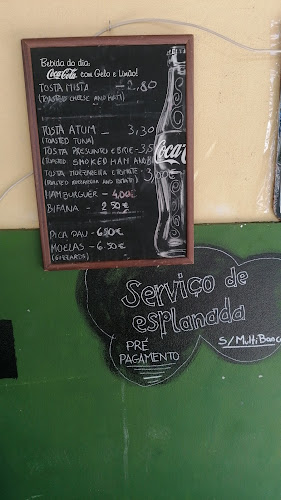 Bebida do dia:
Coca-Cola com Gelo e Limão!
TOSTA MISTA - 2,80
(TOASTED CHEESE AND HAM)
TOSTA ATUM - 3,30
(TOASTED TUNA)
TOSTA PRESUNTO E BRIE - 3,5
(TOASTED SMOKED HAM AND
TOSTA MOZZARELLA E TOMATE - 3,
(TOASTED MOZZARELLA AND
HAMBURGUER - 4.00€
BIFANA - 2.50€
PICA PAU - 6.50€
MOELAS - 6.50€
(GIZZARDS)
Coca
Serviço de
esplanada
PRÉ
PAGAMENTO
S/MultiBanco